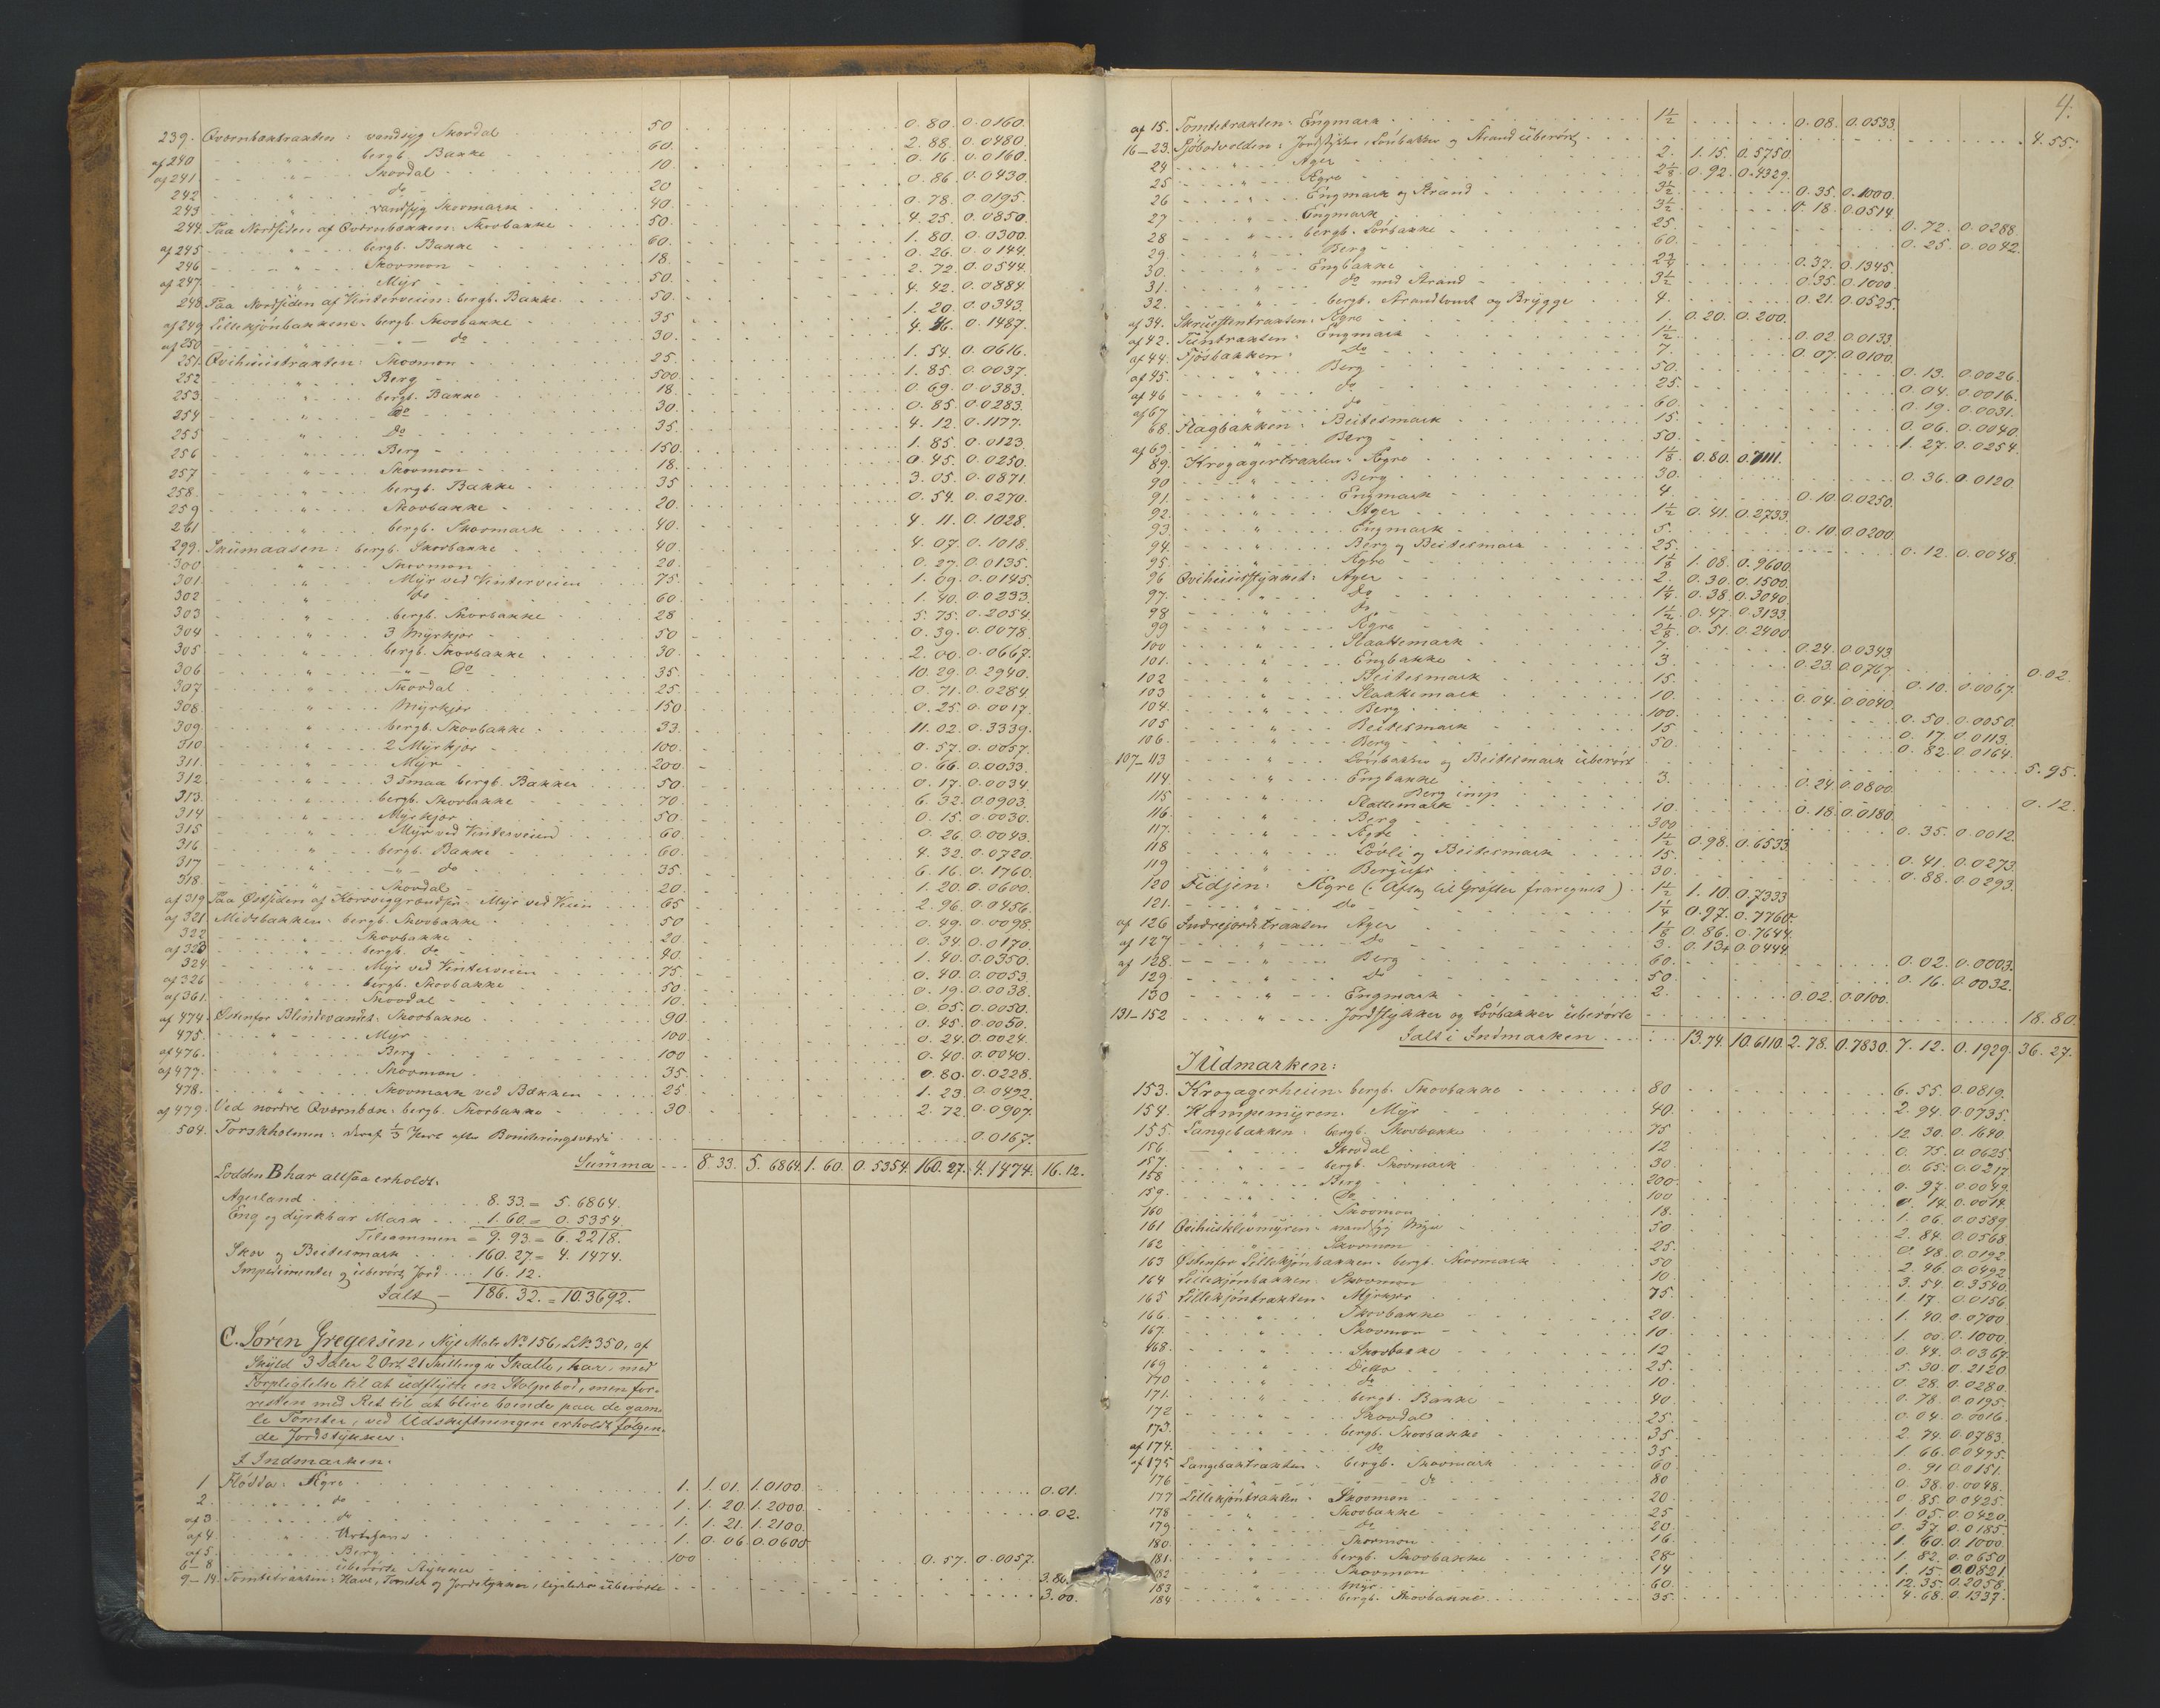 239. Qværnbæktrakten: vandsyg Skovdal 50 0.80. 0.0160.
af 240 " bergb. Bakke 60. 2.88. 0.0480.
af 241. " Skovdal 10. 0.16. 0.0160.
242 " do 20 0.86. 0.0430.
243 " vandsyg Skovmark 40. 0.78. 0.0195.
244. Paa Nordsiden af Qværnbækken: Skovbakke 50. 4.25. 0.0850.
af 245 " bergb. Bakke 60. 1.80. 0.0300.
246 " Skovmon 18. 0.26. 0.0144.
af 247. " Myr 50. 2.72. 0.0544.
248. Paa Nordsiden af Vinterveien: bergb. Bakke 50. 4.42. 0.0884.
af 249 Lillekjónbakkene: bergb. Skovbakke 35 1.20. 0.0343.
af 250 " do 30. 4.46. 0.1487.
251. Qvihuustrakten: Skovmon 25. 1.54. 0.0616.
252 " Berg 500 1.85. 0.0037.
253 " bergb. Bakke 18. 0.69. 0.0383.
254 " do 30. 0.85. 0.0283.
255 " do 35. 4.12. 0.1177.
256 " Berg 150. 1.85. 0.0123.
257 " Skovmon 18. 0.45. 0.0250.
258. " bergb. Bakke 35 3.05. 0.0871.
259 " Skovbakke 20. 0.54. 0.0270.
261 " bergb. Skovmark 40. 4.11. 0.1028.
299. Skumaasen: bergb. Skovbakke 40. 4.07. 0.1018.
300 " Skovmon 20. 0.27. 0.0135.
301. " Myr ved Vinterveien 75. 1.09. 0.0145.
302 " do 60. 1.40. 0.0233.
303 " bergb. Skovbakke 28 5.75. 0.2054.
304 " 3 Myrkjór 50 0.39. 0.0078.
305 " bergb. Skovbakke 30. 2.00. 0.0667.
306 " do 35. 10.29. 0.2940.
307 " Skovdal 25. 0.71. 0.0284.
308 " Myrkjór 150 0.25. 0.0017.
309. " bergb. Skovbakke 33. 11.02. 0.3339.
310. " 2 Myrkjór 100. 0.57. 0.0057.
311. " Myr 200 0.66. 0.0033.
312. " 3 smaa bergb. Bakker 50. 0.17. 0.0034.
313. " bergb. Skovbakke 70. 6.32. 0.0903.
314 " Myrkjór 50. 0.15. 0.0030.
315 " Myr ved Vinterveien 60. 0.26. 0.0043.
316 " bergb. Bakke 60. 4.32. 0.0720.
317 " do 35. 6.16. 0.1760.
318. " Skovdal 20. 1.20. 0.0600.
af 319 Paa Østsiden af Korsveggrændsen: Myr ved Veien 65 2.96. 0.0456.
af 321 Midtbakken: bergb. Skovbakke 50 0.49. 0.0098.
322 Skovbakke 20. 0.34. 0.0170.
af 323 " bergb. do 40. 1.40. 0.0350.
324 " Myr ved Vinterveien 75. 0.40. 0.0053.
af 326 " bergb. Skovbakke 50. 0.19. 0.0038.
af 361. " Skovdal 10. 0.05. 0.0050.
af 474. Østenfor Blindevandet: Skovbakke 90. 0.45. 0.0050.
475. " Myr 100. 0.24. 0.0024.
af 476. " Berg 100 0.40. 0.0040.
af 477. " Skovmon 35. 0.80. 0.0228.
478. " Skovmark ved Bækken 25 1.23. 0.0492.
af 479. Ved nordre Qværnbæk: bergb. Skovbakke 30. 2.72. 0.0907.
504. Torskholmen: deraf 1/3 Part efter Boniteringsværdi 0.0167.
Summa 8.33. 5.6864. 1.60. 0.5354. 160.27. 4.1474. 16.12.
Lodden B har altsaa erholdt:
Agerland 8.33. = 5.6864.
Eng og dyrkbar Mark 1.60. = 0.5354.
Tilsammen = 9.93. = 6.2218.
Skov og Beitesmark 160.27 = 4.1474.
Impedimenter og uberørt Jord 16.12.
Ialt – 186.32. = 10.3692.
C. Sören Gregersen, Nye Matr. No 156, L.No 350, af
Skyld 3 Daler 2 Ort 21 Skilling i Skatte, har, med
Forpligtelse til at udflytte en Stolpebod, men for-
resten med Ret til at blive boende paa de gam-
le Tomter, ved Udskiftningen erholdt følgen-
de Jordstykker:
I Indmarken:
1 Flódda: Agre 1. 1.01. 1.0100. 0.01.
2. " do 1. 1.20. 1.2000. 0.02.
af 3 " do 1. 1.21. 1.2100.
af 4. " Urtehave 1. 0.06. 0.0600
af 5. " Berg 100 0.57. 0.0057.
6–8 " uberørte Stykker 3.86.
9–14. Tomtetrakten: Have, Tomter og Jordstykker, ligeledes uberørte 3.00.
4.
af 15. Tomtetrakten: Engmark 1½ 0.08. 0.0533.
16–23. Sjöbodvolden: Jordstykker, Lóvbakker og Strand uberørt 4.55.
24 " Ager 2. 1.15. 0.5750.
25 " Agre 2⅛ 0.92. 0.4329.
26 " Engmark og Strand 3½ 0.35. 0.1000.
27 " Engmark 3½ 0.18. 0.0514.
28 " bergb. Lóvbakke 25. 0.72. 0.0288.
29. " Berg 60. 0.25. 0.0042.
30. " Engbakke 2¾ 0.37. 0.1345.
31. " do med Strand 3½ 0.35. 0.1000.
32. " bergb. Strandtomt og Brygge 4. 0.21. 0.0525.
af 34. Skruestentrakten: Agre 1. 0.20. 0.200.
af 42. Tuntrakten: Engmark 1½ 0.02. 0.0133.
af 44. Fjósbakken: do 7. 0.07. 0.0100.
af 45. " Berg 50. 0.13. 0.0026.
af 46 " do 25. 0.04. 0.0016.
af 67 " do 60. 0.19. 0.0031.
68. Flagbakken: Beitesmark 15. 0.06. 0.0040.
af 69. " Berg 50. 1.27. 0.0254.
89. Krogagertrakten: Agre 1⅛ 0.80. 0.7111.
90 " Berg 30. 0.36. 0.0120.
91. " Engmark 4. 0.10. 0.0250.
92. " Ager 1½ 0.41. 0.2733.
93. " Engmark 5. 0.10. 0.0200.
94. " Berg og Beitesmark 25. 0.12. 0.0048.
95. " Agre 1⅛ 1.08. 0.9600.
96 Qvihuusstykket: Ager 2. 0.30. 0.1500.
97. " do 1¼ 0.38. 0.3040.
98 " do 1½ 0.47. 0.3133.
99 " Agre 2⅛ 0.51. 0.2400
100 " Slaattemark 7. 0.24. 0.0343.
101. " Engbakke 3. 0.23. 0.0767. 0.02.
102 " Beitesmark 15. 0.10. 0.0067.
103 " Slaattemark 10. 0.04. 0.0040.
104. " Berg 100. 0.50. 0.0050.
105 " Beitesmark 15 0.17. 0.0113.
106. " Berg 50. 0.82. 0.0164.
107–113 " Lóvbakker og Beitesmark uberørt 5.95.
114 " Engbakke 3. 0.24. 0.0800.
115 " Berg imp 0.12.
116. " Slattemark 10. 0.18. 0.0180.
117. " Berg 300 0.35. 0.0012.
118 " Agre 1½ 0.98. 0.6533.
119 " Lóvli og Beitesmark 15. 0.41. 0.0273.
Bergufs 30. 0.88. 0.0293.
120 Fidjen: Agre (: Aftag til Grøfter fraregnet) 1½ 1.10. 0.7333
121. " do 1¼ 0.97. 0.7760
af 126 Indrejordstrakten Ager 1⅛ 0.86. 0.7644.
af 127 " do 3. 0.13+ 0.0444.
af 128. " Berg 60. 0.02. 0.0003.
129. " do 50. 0.16. 0.0032.
130 " Engmark 2. 0.02. 0.0100.
131–152 " Jordstykker og Lóvbakker uberørte 18.80.
Ialt i Indmarken 13.74. 10.6110. 2.78. 0.7830. 7.12. 0.1929. 36.27.
I Udmarken:
153. Krogagerheien: bergb. Skovbakke 80 6.55. 0.0819.
154. Hampemyren: Myr 40. 2.94. 0.0735.
155 Langebakken: bergb. Skovbakke 75 12.30. 0.1640.
156 " Skovdal 12 0.75. 0.0625
157. " bergb. Skovmark 30. 0.65. 0.0217
158 " Berg 200. 0.97. 0.0049.
159. " do 100 0.14. 0.0014.
160 " Skovmon 18. 1.06. 0.0589.
161 Qvihusklevmyren: vandsyg Myr 50 2.84. 0.0568.
162 " Skovmon 25. 0.48. 0.0192.
163 Østenfor Lillekjónbakken: bergb. Skovmark 50 2.46. 0.0492.
164 Lillekjónbakken: Skovmon 10. 3.54. 0.3540.
165 Lillekjóntrakten: Myrkjór 75. 1.17. 0.0156.
166 " Skovbakke 20. 1.40. 0.0700
167. " Skovmon 10. 1.00. 0.1000.
168. " Skovbakke 12 0.44. 0.0367.
169 " Ditto 25. 5.30. 0.2120.
170 " do 10. 0.28. 0.0280.
171. " bergb. Bakke 40 0.78. 0.0195.
172 " Skovdal 25. 0.04. 0.0016.
173. " bergb. Skovbakke 35 2.74. 0.0783.
af 174. " do 35 1.66. 0.0475.
af 175 Langebæktrakten: bergb. Skovmark 60 0.91. 0.0151.
176 " do 80 0.38. 0.0048.
177 Lillekjóntrakten: Skovmon 20 0.85. 0.0425.
178 " Skovbakke 25 1.05. 0.0420.
179 " do 20. 0.37. 0.0185.
180 " Skovmon 16 1.60. 0.1000.
181. " bergb. Skovbakke 28 1.82. 0.0650.
182 " Skovmon 14 1.15. 0.0821.
183 " Myr 60. 12.35. 0.2058.
184 " bergb. Skovbakke 35. 4.68. 0.1337.